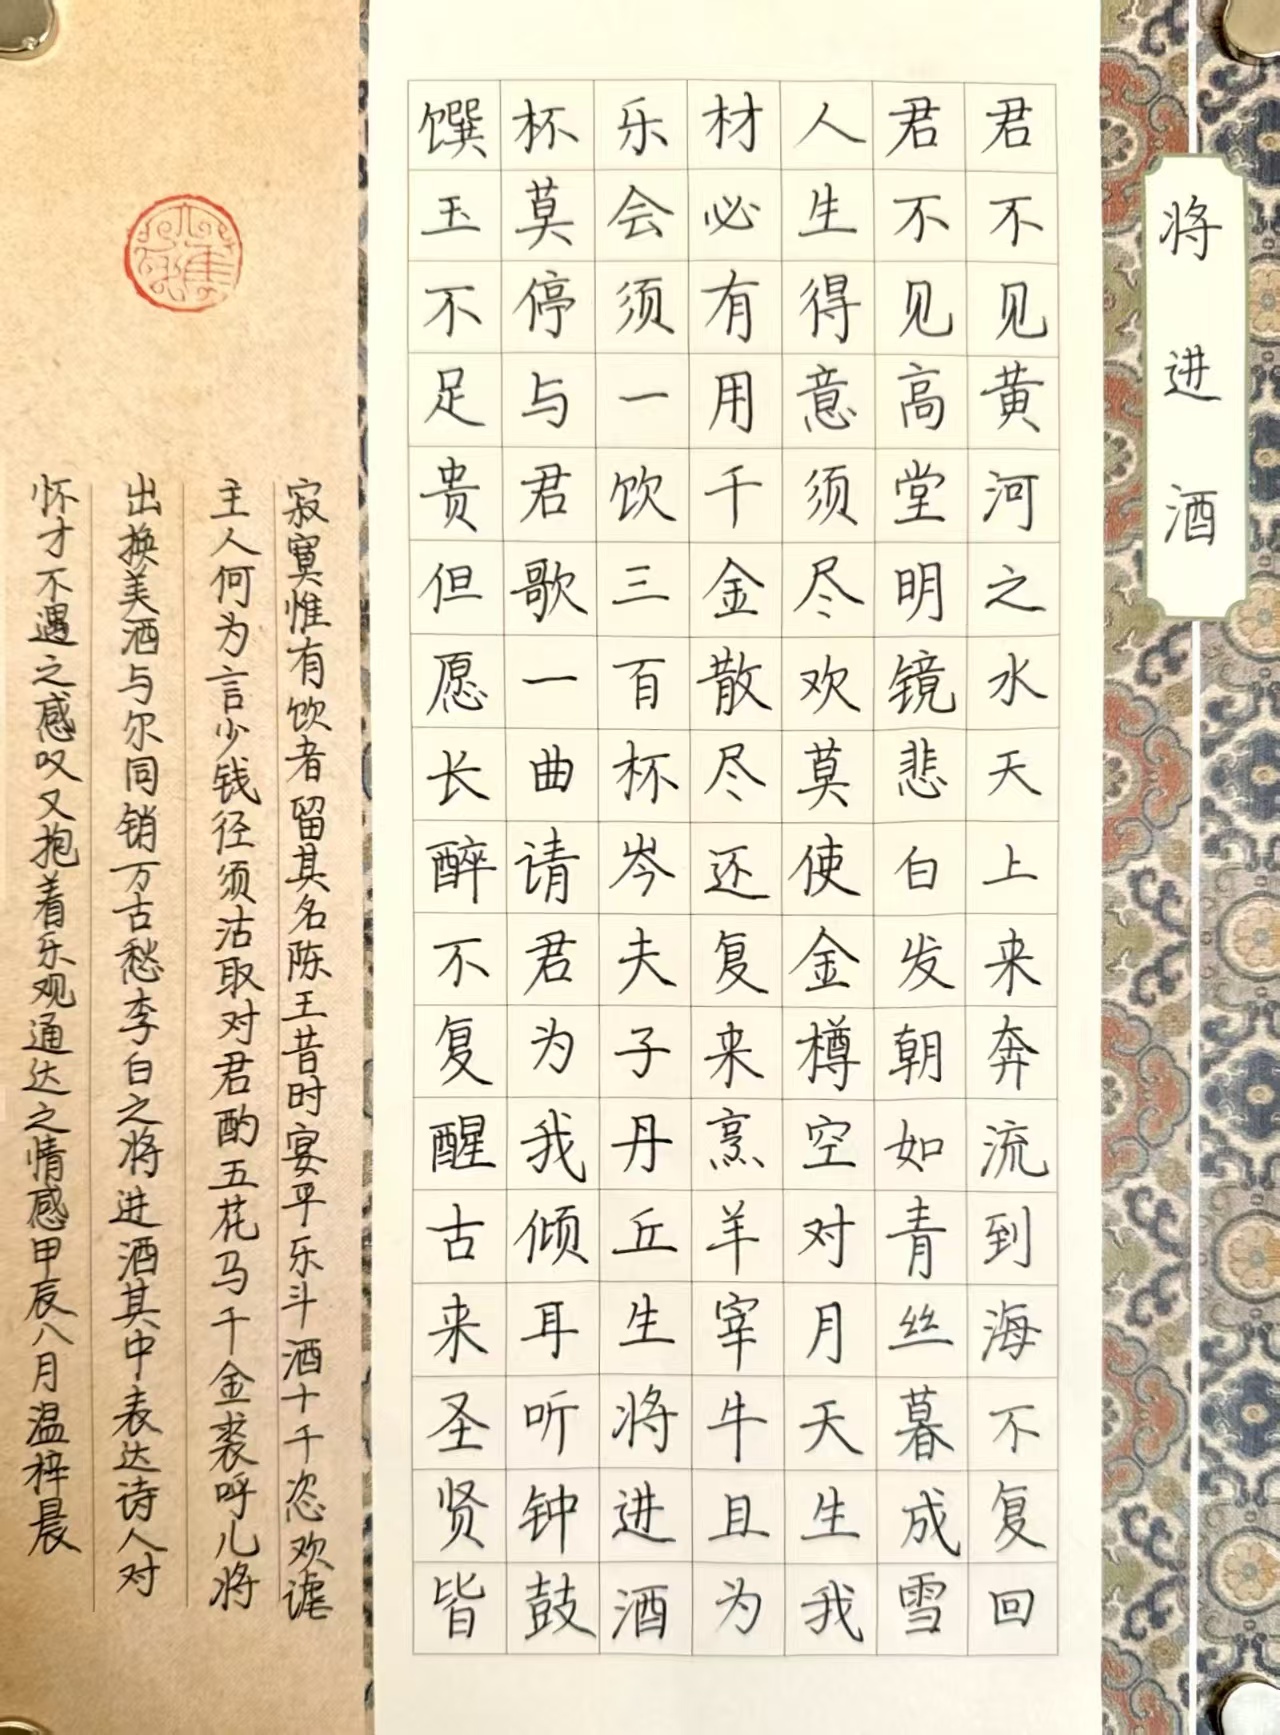 将进酒
君不见黄河之水天上来奔流到海不复回
君不见高堂明镜悲白发朝如青丝暮成雪
人生得意须尽欢莫使金樽空对月天生我
材必有用千金散尽还复来烹羊宰牛且为
乐会须一饮三百杯岑夫子丹丘生将进酒
杯莫停与君歌一曲请君为我倾耳听钟鼓
馔玉不足贵但愿长醉不复醒古来圣贤皆
寂寞惟有饮者留其名陈王昔时宴平乐斗酒十千恣欢谑
主人何为言少钱径须沽取对君酌五花马千金裘呼儿将
出换美酒与尔同销万古愁李白之将进酒其中表达诗人对
怀才不遇之感叹又抱着乐观通达之情感甲辰八月温梓晨